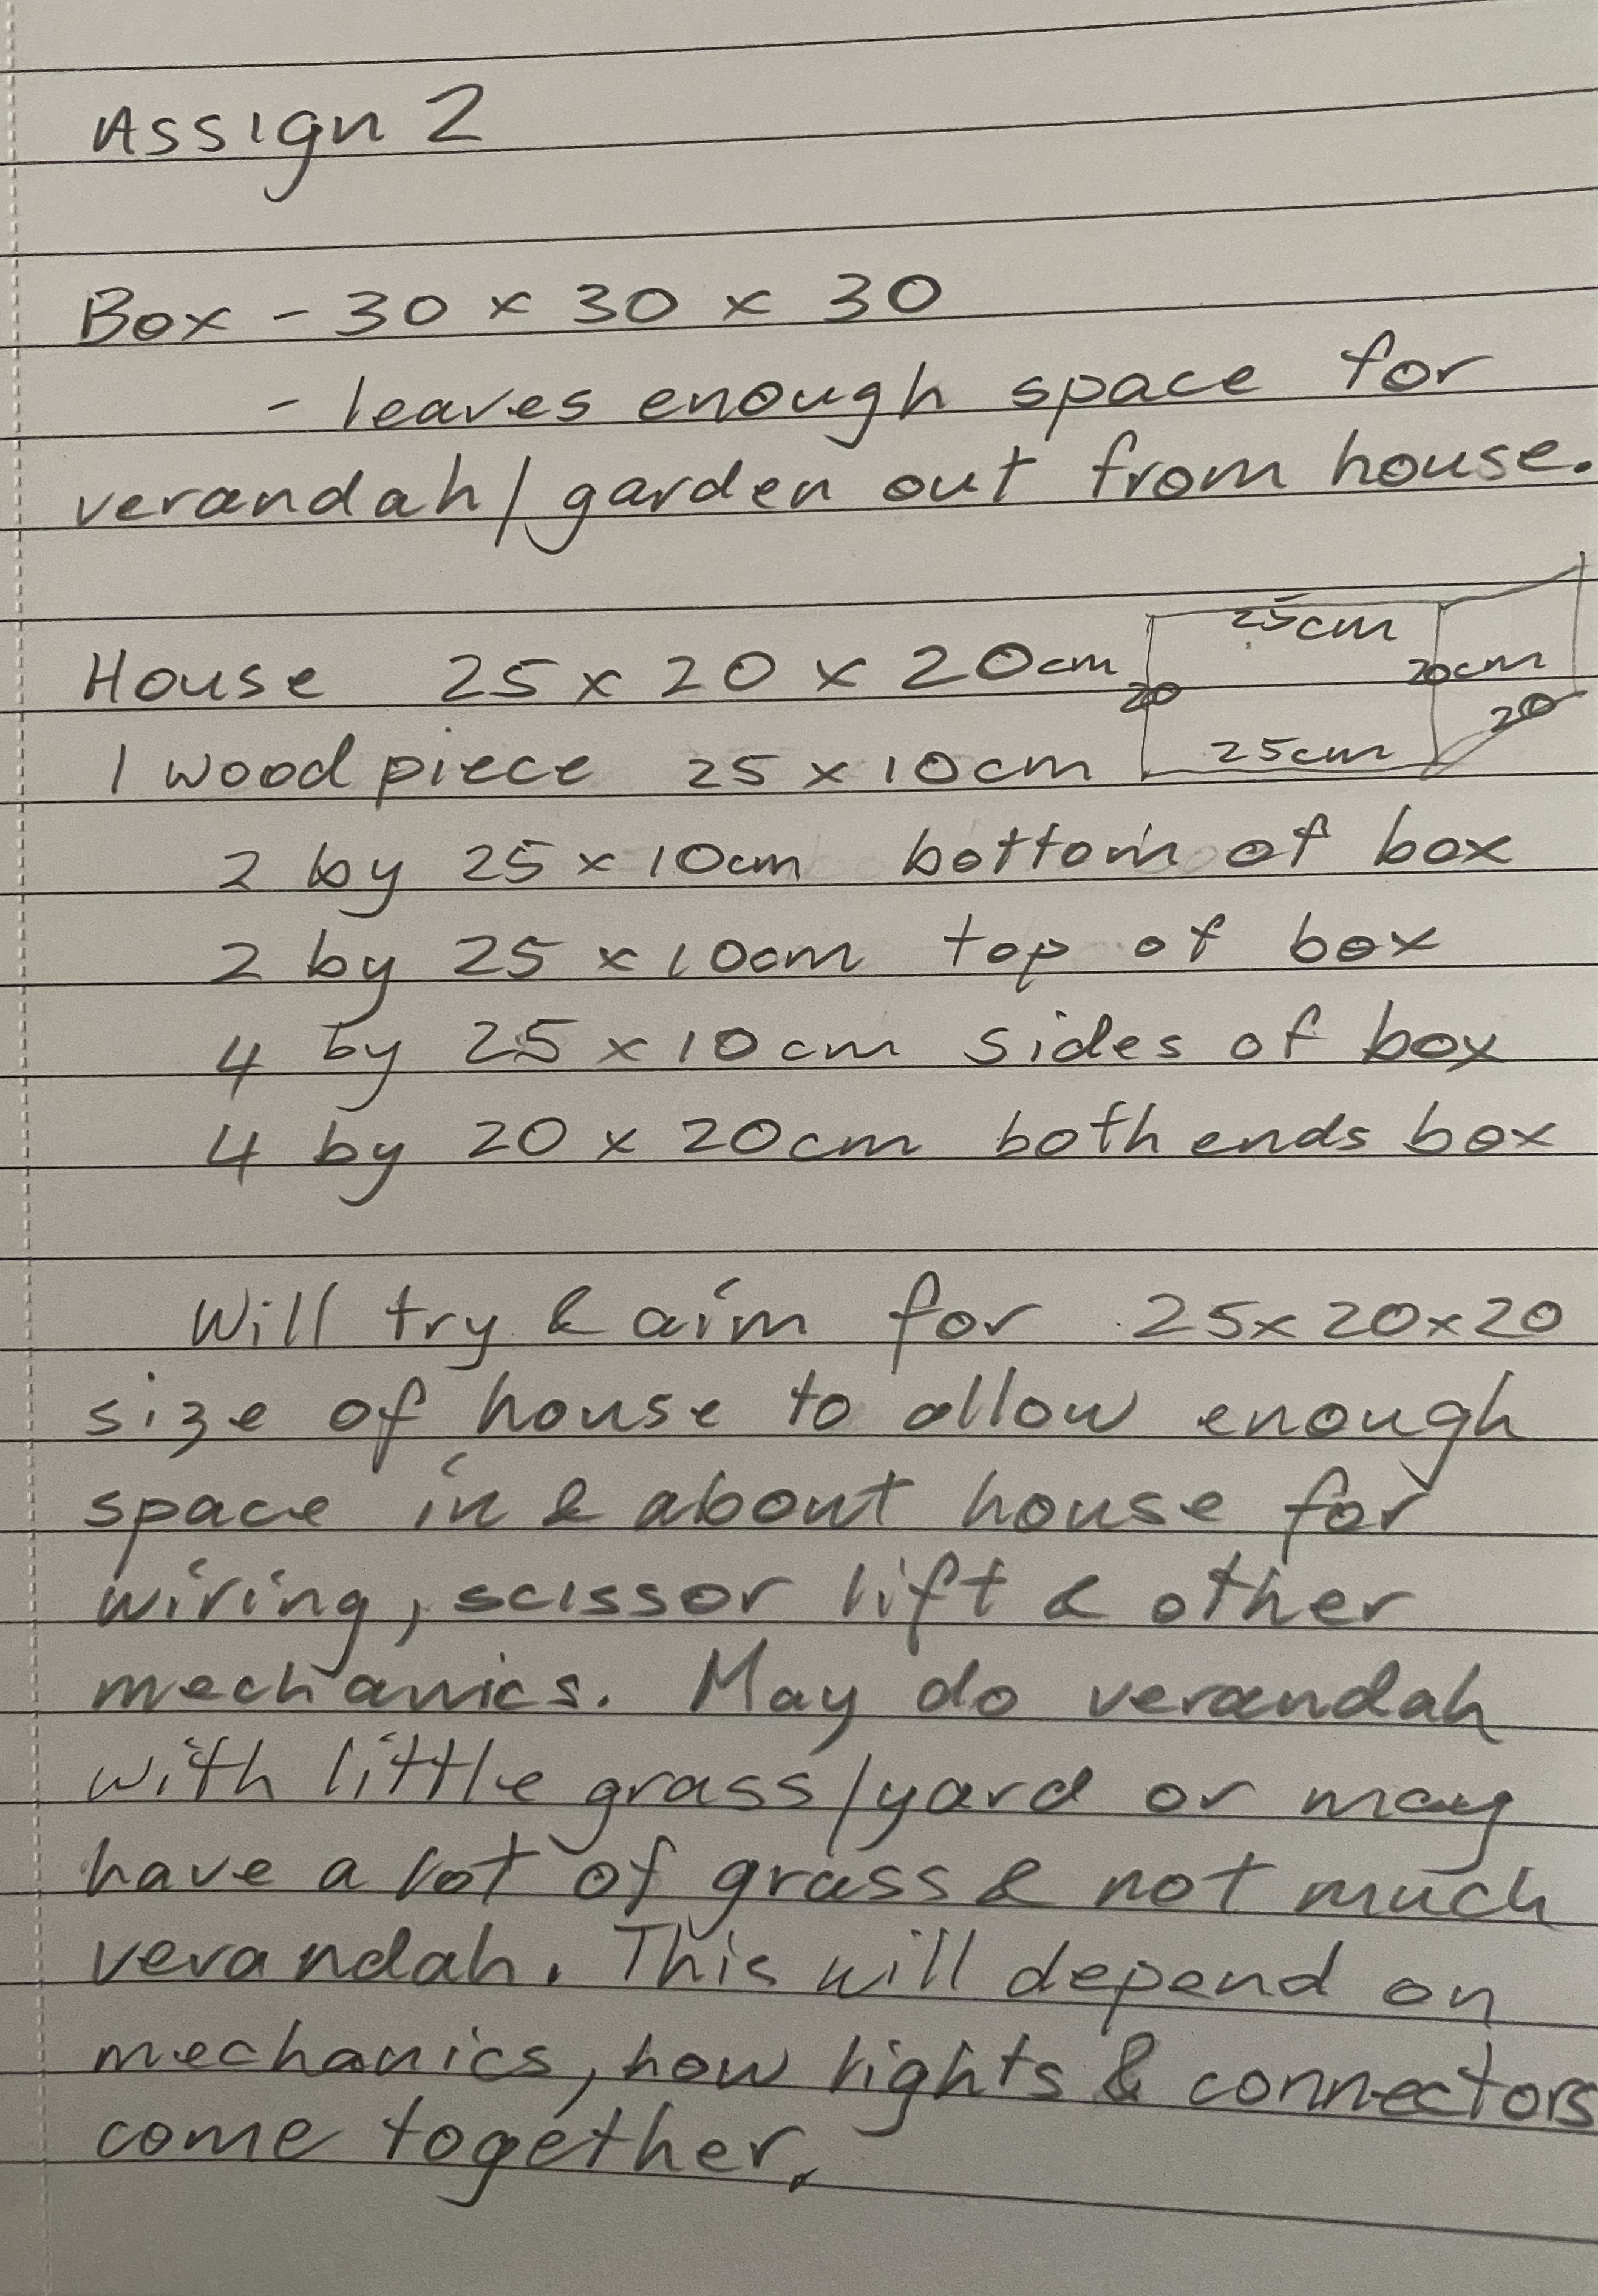 Assign 2
Box - 30 x 30 x 30
- leaves enough space for
verandah/garden out from house.
House 25 x 20 x 20cm
25cm
20
20cm
20
25cm
1 wood piece 25 x 10cm
2 by 25 x 10cm bottom of box
2 by 25 x 10cm top of box
4 by 25 x 10cm sides of box
4 by 20 x 20cm both ends box
Will try & aim for 25x20x20
size of house to allow enough
space in & about house for
wiring, scissor lift & other
mechanics. May do verandah
with little grass/yard or may
have a lot of grass & not much
verandah. This will depend on
mechanics, how lights & connectors
come together.